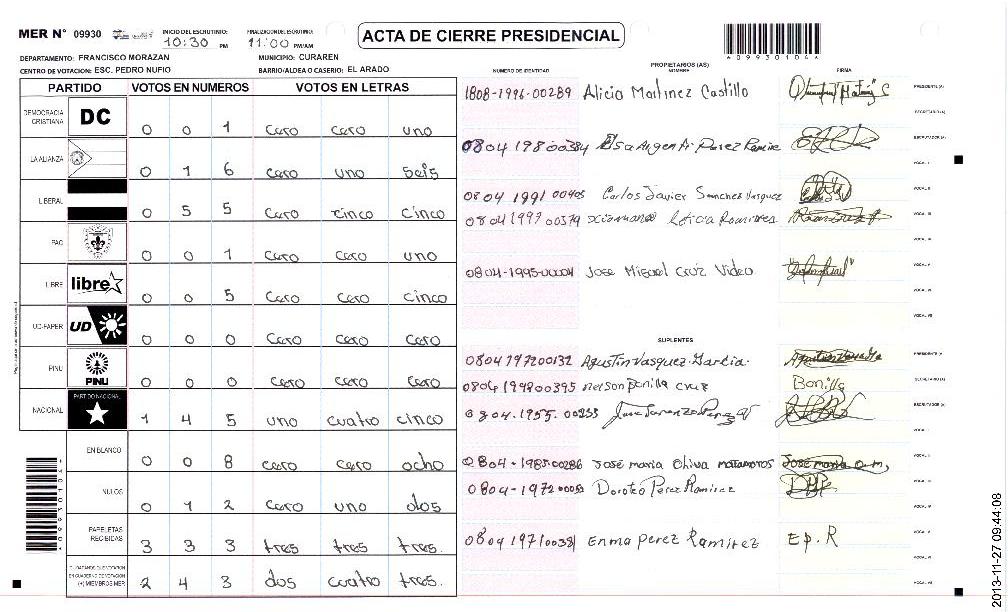 MER N° 09930 INICIO DEL ESCRUTINIO: 10:30 PM FINALIZACION DEL ESCRUTINIO: 11:00 PM/AM
ACTA DE CIERRE PRESIDENCIAL
*09930104*
DEPARTAMENTO: FRANCISCO MORAZAN MUNICIPIO: CURAREN
CENTRO DE VOTACION: ESC. PEDRO NUFIO BARRIO/ALDEA O CASERIO: EL ARADO
NUMERO DE IDENTIDAD PROPIETARIOS (AS) NOMBRE FIRMA
PARTIDO VOTOS EN NUMEROS VOTOS EN LETRAS
DEMOCRACIA CRISTIANA DC 0 0 1 cero cero uno
LA ALIANZA 0 1 6 cero uno seis
LIBERAL 0 5 5 cero cinco cinco
PAC 0 0 1 cero cero uno
LIBRE libre 0 0 5 cero cero cinco
UD-FAPER UD 0 0 0 cero cero cero
PINU PINU 0 0 0 cero cero cero
NACIONAL PARTIDO NACIONAL 1 4 5 uno cuatro cinco
EN BLANCO 0 0 8 cero cero ocho
NULOS 0 1 2 cero uno dos
PAPELETAS RECIBIDAS 3 3 3 tres tres tres.
(+) MIEMBROS MER 2 4 3 dos cuatro tres.
1808-1996-00289 Alicia Martinez Castillo PRESIDENTE (A)
SECRETARIO (A)
0804 1980 00384 Perez ESCRUTADOR (A)
VOCAL I
0804 1991 00405 Carlos Javier Sanchez Vasquez VOCAL II
0804 1997 00379 VOCAL III
VOCAL IV
0804-1995-00004 Jose Miguel Cruz Video VOCAL V
VOCAL VI
VOCAL VII
SUPLENTES
0804 1972 00132 Agustin Vasquez Garcia PRESIDENTE (A)
0804 1992 00395 nelson Bonilla cruz Bonilla SECRETARIO (A)
0804.1955.00233 ESCRUTADOR (A)
VOCAL I
0804-1985-00286 José maria Oliva matamoros José maria O.m, VOCAL II
0804-1972 Doroteo Perez Ramirez VOCAL III
VOCAL IV
0804 1971 00381 Enma perez Ramirez Ep. R VOCAL V
VOCAL VI
VOCAL VII
2013-11-27 09:44:08